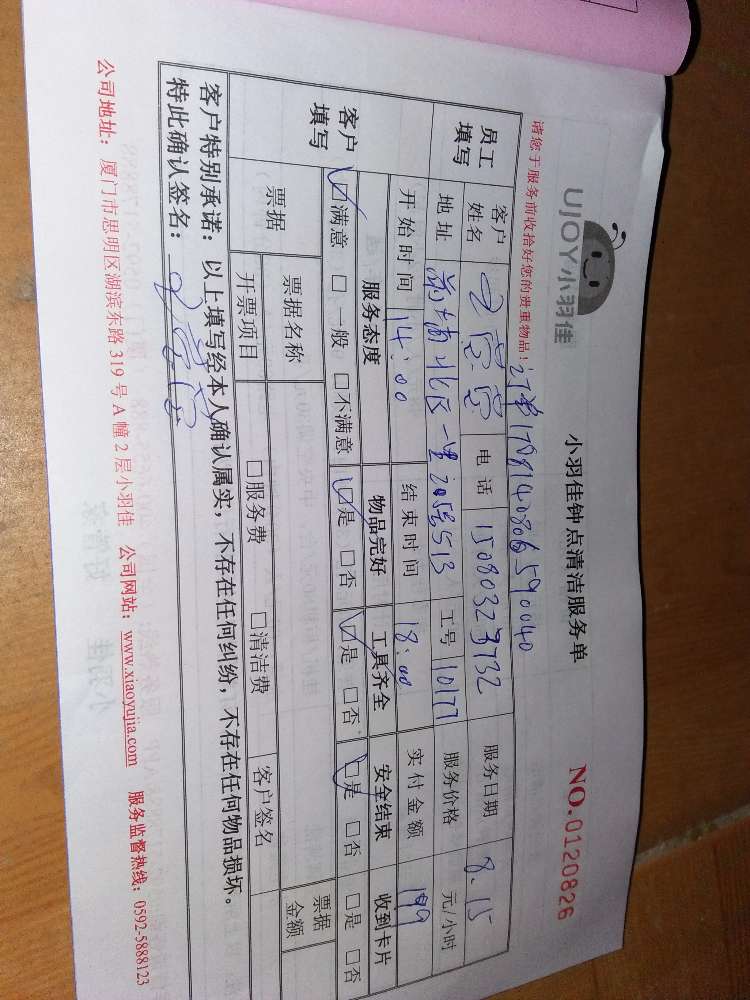 UJOY小羽佳
小羽佳钟点清洁服务单
NO.0120826
请您于服务前收拾好您的贵重物品！
订单178140806590040
员工填写
客户姓名 电话 15080323732 服务日期 8.15
地址 前埔北区一里205号513 工号 10177 服务价格 元/小时
开始时间 14:00 结束时间 18:00 实付金额 199
客户填写
服务态度 物品完好 工具齐全 安全结束 收到卡片
☑满意 □一般 □不满意 ☑是 □否 ☑是 □否 ☑是 □否 □是 □否
票据 票据名称 票据金额
开票项目 □服务费 □清洁费 客户签名
客户特别承诺：以上填写经本人确认属实，不存在任何纠纷，不存在任何物品损坏。
特此确认签名：
公司地址：厦门市思明区湖滨东路319号A幢2层小羽佳 公司网站：www.xiaoyujia.com 服务监督热线：0592-5888123